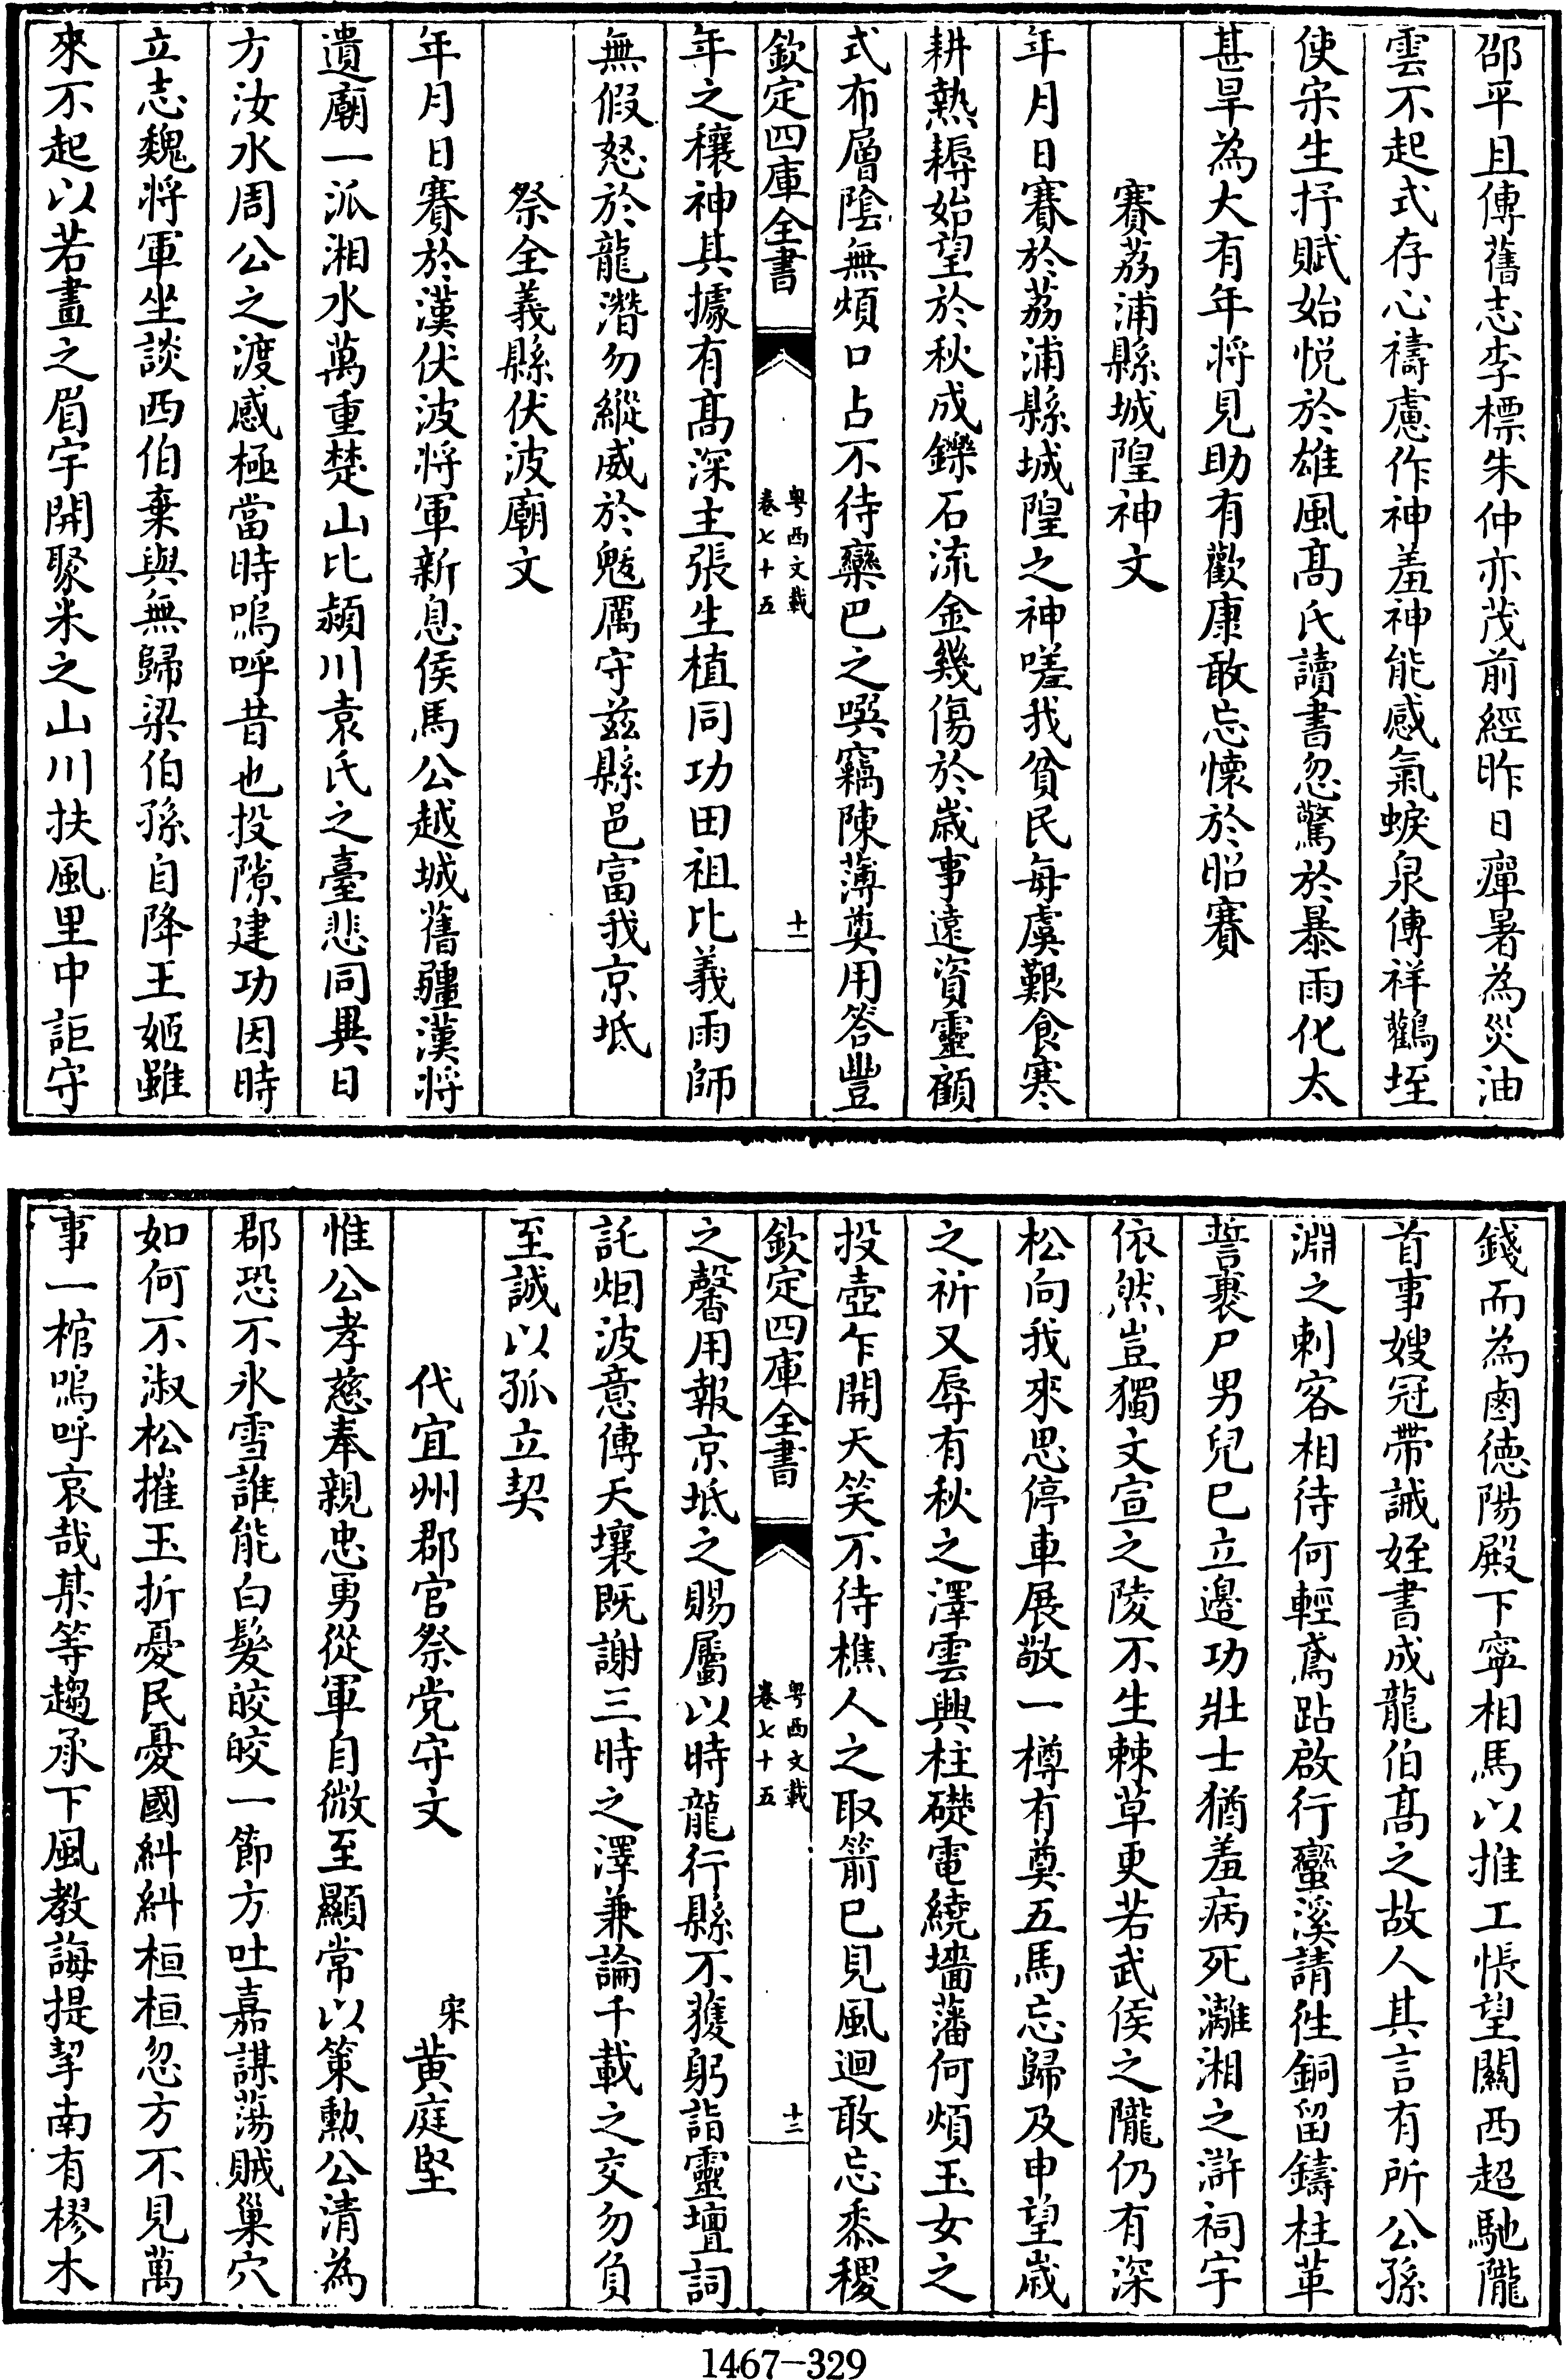 邵平且傳舊志李標朱仲亦茂前經昨日癉暑為災油
雲不起式存心禱慮作神羞神能感氣蜧泉傳祥鸛垤
使宋生抒賦始悦於雄風髙氏讀書忽驚於暴雨化太
甚旱為大有年将見助有歡康敢忘懷於昭賽
賽荔浦縣城隍神文
年月日賽於荔浦縣城隍之神嗟我貧民每虞艱食寒
耕熱耨始望於秋成鑠石流金幾傷於歳事遠資靈顧
式布層陰無煩口占不待欒巴之噀竊陳薄奠用答豐
欽定四庫全書
粤西文載
卷七十五
十一
年之穰神其據有髙深主張生植同功田祖比義雨師
無假怒於龍潛勿縱威於魃厲守兹縣邑富我京坻
祭全義縣伏波廟文
年月日賽於漢伏波将軍新息侯馬公越城舊疆漢将
遺廟一派湘水萬重楚山比潁川袁氏之臺悲同異日
方汝水周公之渡感極當時嗚呼昔也投隙建功因時
立志魏将軍坐談西伯棄與無歸梁伯孫自降王姬雖
來不起以若畫之眉宇開聚米之山川扶風里中詎守
錢而為鹵徳陽殿下寧相馬以推工悵望關西超馳隴
首事嫂冠帶誡姪書成龍伯髙之故人其言有所公孫
淵之刺客相待何輕鳶跕啟行蠻溪請徃銅留鑄柱革
誓裹尸男兒已立邊功壯士猶羞病死灕湘之滸祠宇
依然豈獨文宣之陵不生棘草更若武侯之隴仍有深
松向我來思停車展敬一樽有奠五馬忘歸及申望歳
之祈又辱有秋之澤雲興柱礎電繞墻藩何煩玉女之
投壺乍開天笑不待樵人之取箭已見風迴敢忘黍稷
欽定四庫全書
粤西文載
卷七十五
十二
之馨用報京坻之賜屬以時龍行縣不獲躬詣靈壇詞
託烟波意傳天壤既謝三時之澤兼論千載之交勿負
至誠以孤立契
代宜州郡官祭党守文 宋黄庭堅
惟公孝慈奉親忠勇從軍自微至顯常以策勲公清為
郡恐不氷雪誰能白髮皎皎一節方吐嘉謀蕩賊巢穴
如何不淑松摧玉折憂民憂國糾糾桓桓忽方不見萬
事一棺嗚呼哀哉某等趨承下風教誨提挈南有樛木
1467-329